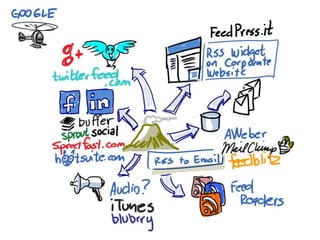 GOOGLE
g+
twitterfeed
.com
f in
buffer
sprout social
Spredfast.com
hootsuite.com
Audio?
iTunes
blubrry
FeedPress.it
RSS Widget
on Corporate
Website
RSS to Email
AWeber
MailChimp
feedblitz
Feed
Readers